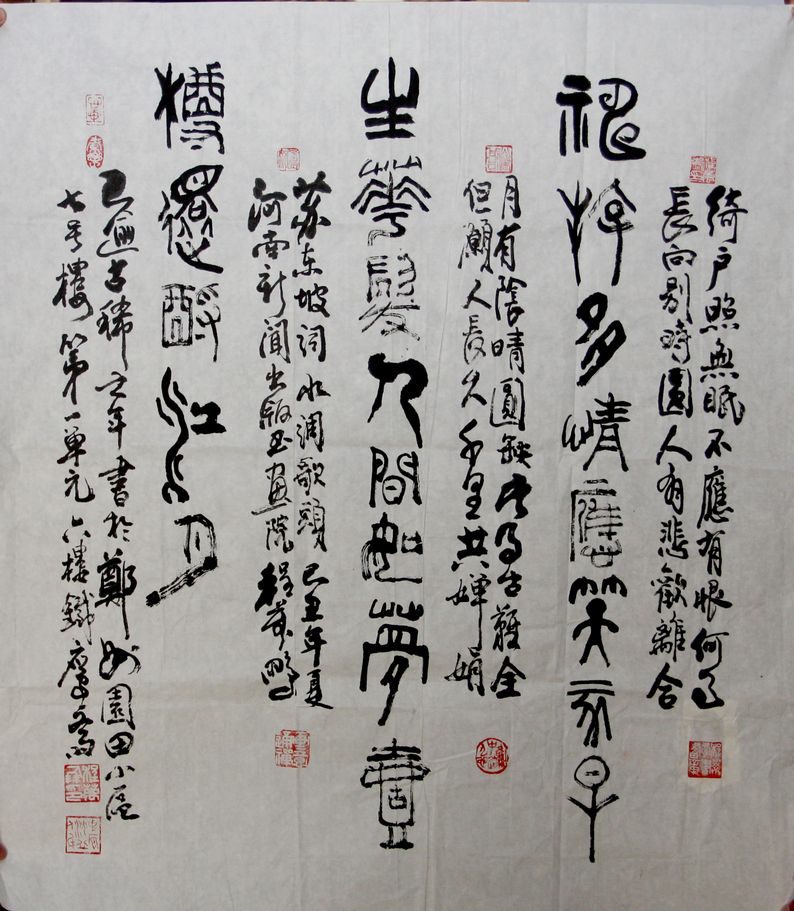 綺户照無眠不應有恨何事
長向别時圓人有悲歡離合
神遊多情應笑我早
月有陰晴圓缺此事古難全
但願人長久千里共嬋娟
生華髮人間如夢壹
蘇东坡詞水調歌頭 己丑年夏
河南新聞出版書畫院
樽還酹江月
已逾古稀之年書於鄭州園田小區
七号樓第一單元六樓